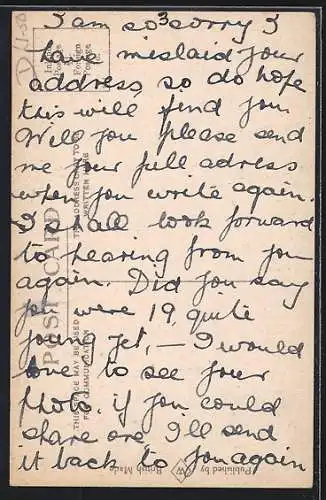 3
I am so sorry I
have mislaid your
address, so do hope
this will find you
Will you please send
me your full adress
when you write again.
I shall look forward
to hearing from you
again. Did you say
you were 19, quite
young yet, – I would
love to see your
photo. if you could
share one I'll send
it back to you again
POST CARD
THIS SPACE MAY BE USED
FOR COMMUNICATION
THE ADDRESS ONLY TO
WRITTEN HERE
Inland
Postage
Foreign
Postage
Published by
British Made